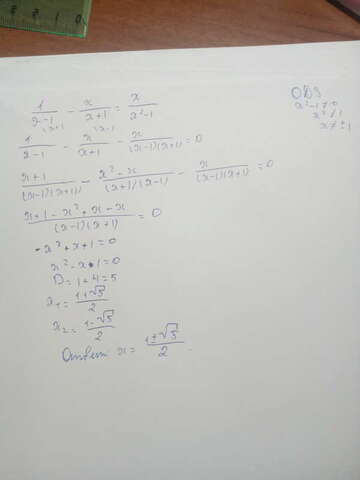 1/(x-1) - x/(x+1) = x/(x²-1)
ОДЗ
x²-1≠0
x²≠1
x≠±1
1/(x-1) - x/(x+1) - x/((x-1)(x+1)) = 0
(x+1)/((x-1)(x+1)) - (x²-x)/((x+1)(x-1)) - x/((x-1)(x+1)) = 0
(x+1-x²+x-x)/((x-1)(x+1)) = 0
-x²+x+1=0
x²-x-1=0
D=1+4=5
x₁=(1+√5)/2
x₂=(1-√5)/2
Ответ x=(1±√5)/2